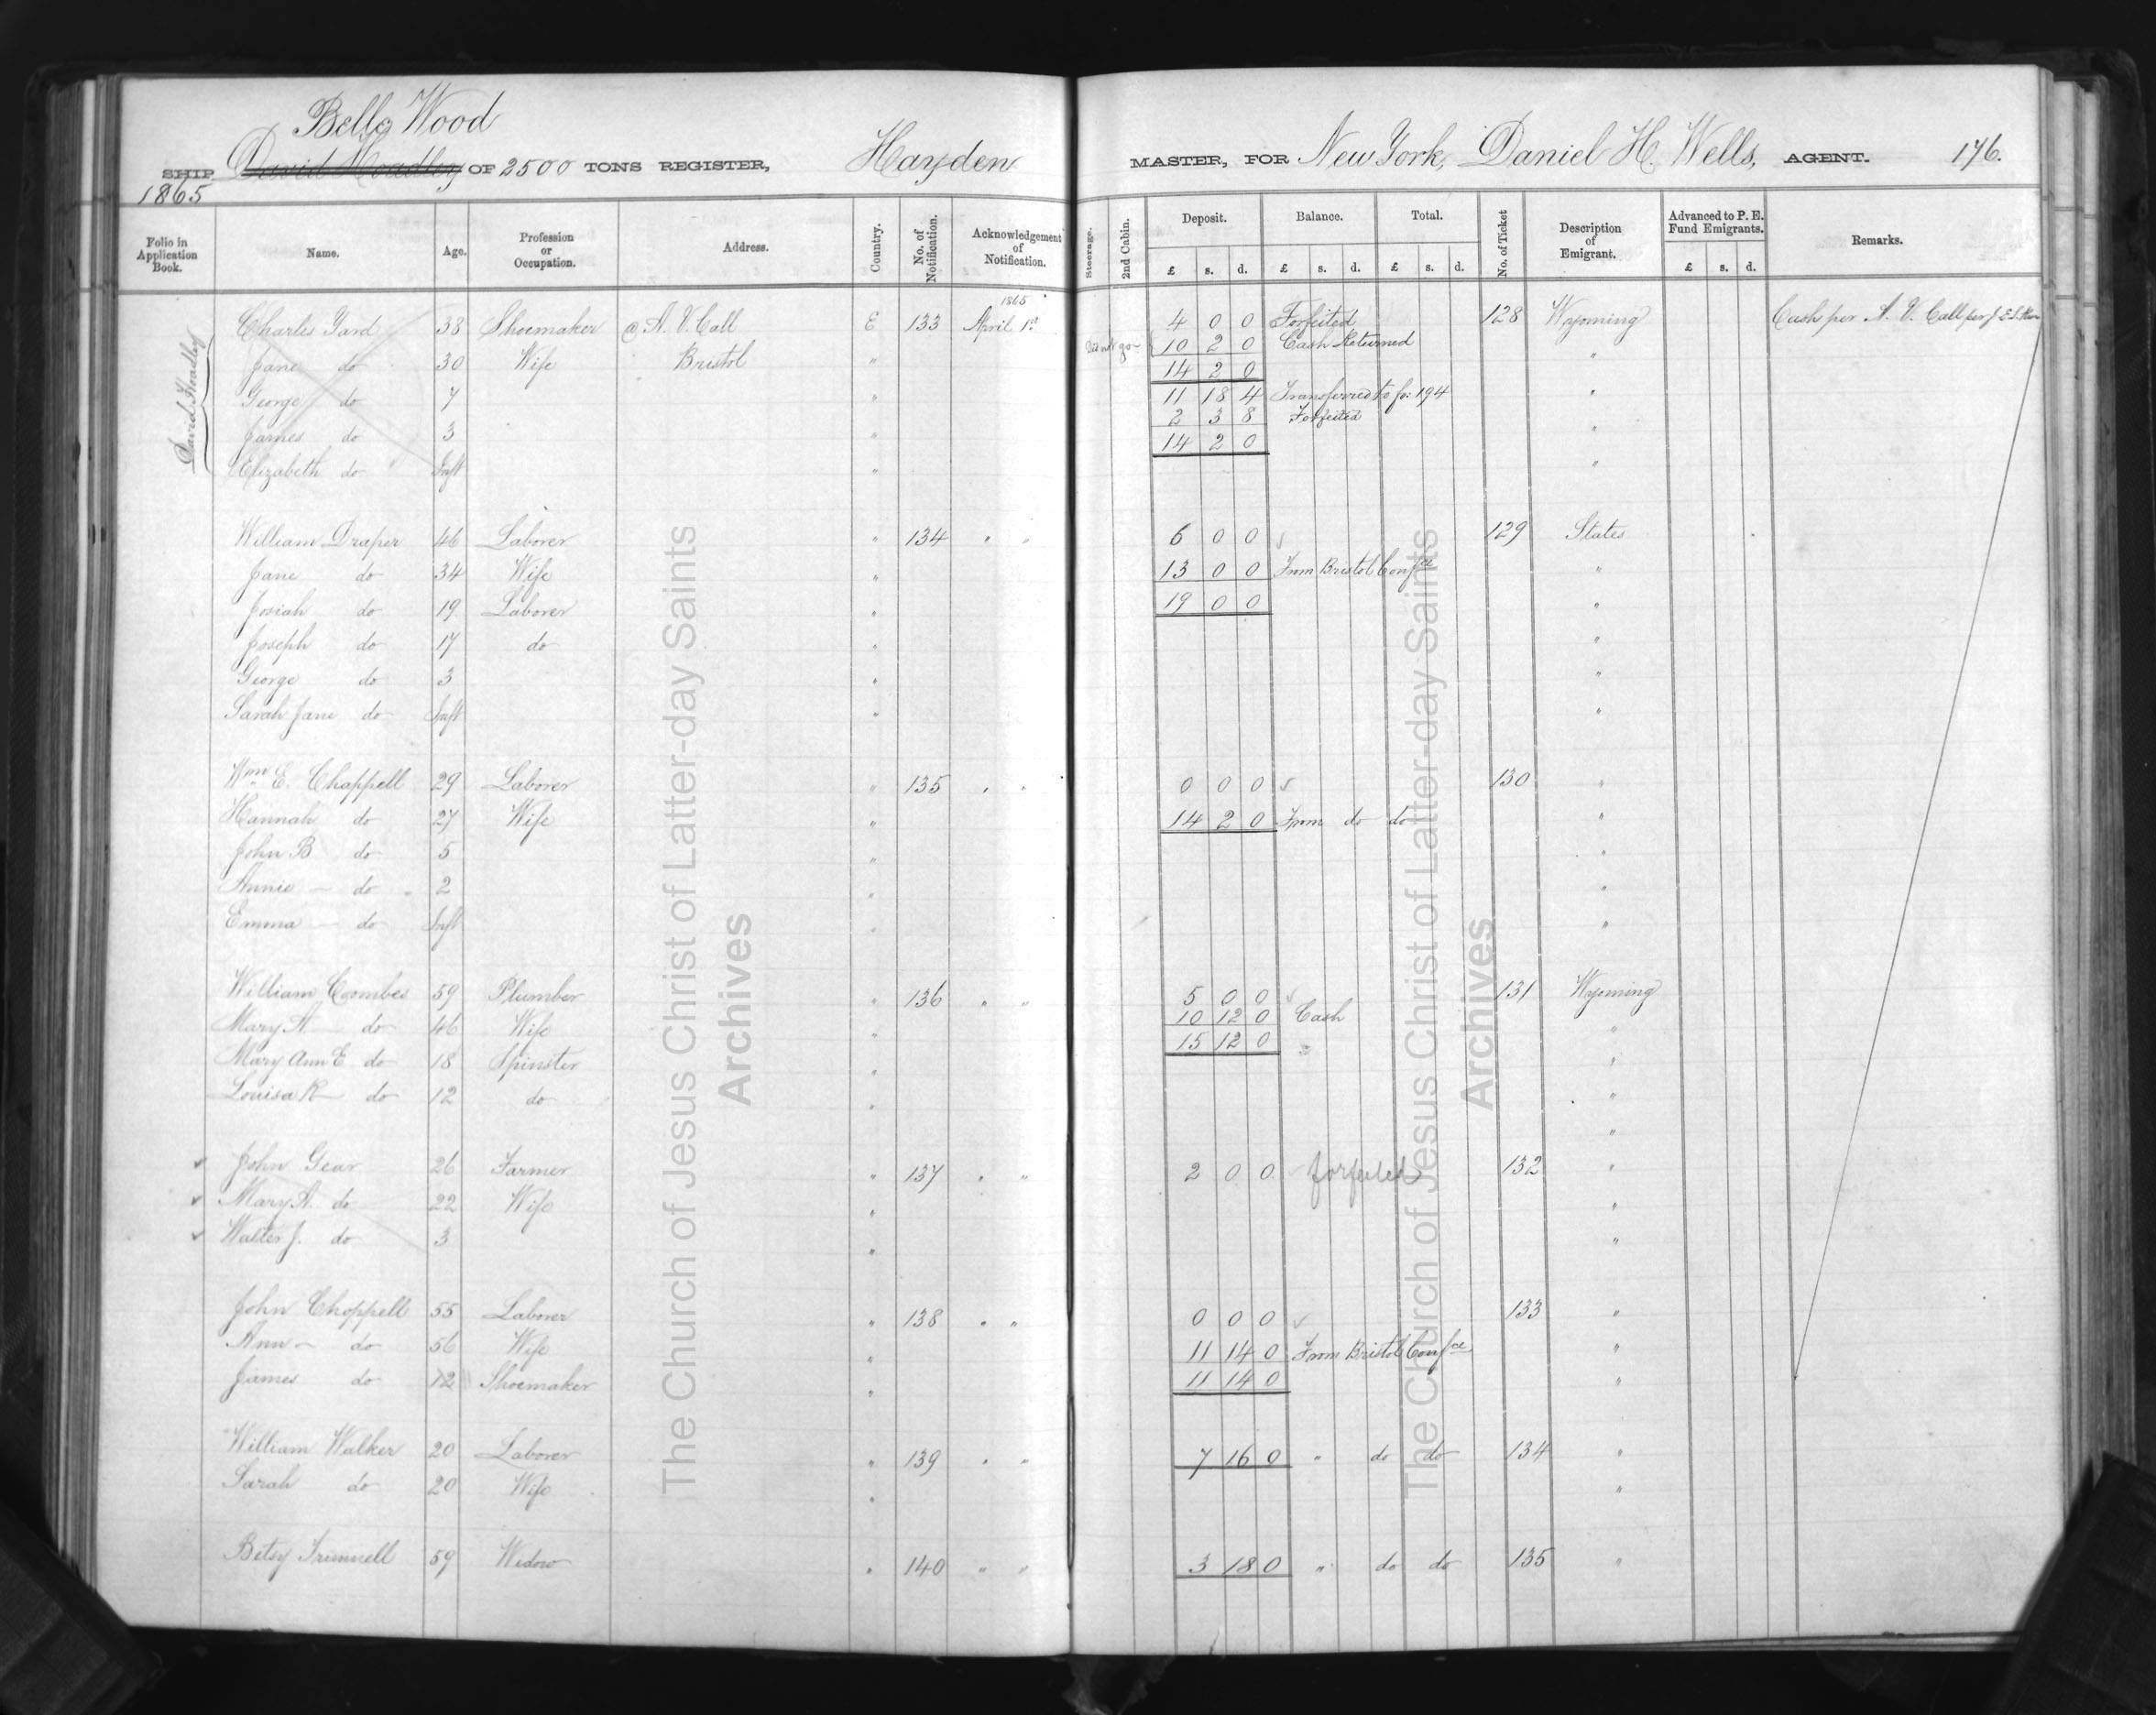 Belle Wood
SHIP David Hoadley OF 2500 TONS REGISTER, Hayden MASTER, FOR New York, Daniel H. Wells, AGENT. 176.
1865
Folio in Application Book. Name. Age. Profession or Occupation. Address. Country. No. of Notification. Acknowledgement of Notification. Steerage. 2nd Cabin. Deposit. Balance. Total. No. of Ticket Description of Emigrant. Advanced to P. E. Fund Emigrants. Remarks.
£ s. d. £ s. d. £ s. d. £ s. d.
1865
David Hoadley
Charles Yard 38 Shoemaker @ A. V. Call E 133 April 1st 4 0 0 Forfeited 128 Wyoming Cash per A. V. Call per
Jane do 30 Wife Bristol " Did not go 10 2 0 Cash Returned "
14 2 0
George do 7 " 11 18 4 Transferred to fo: 194 "
2 3 8 Forfeited
James do 3 " 14 2 0 "
Elizabeth do Inft " "
William Draper 46 Laborer " 134 " " 6 0 0 129 States
Jane do 34 Wife " 13 0 0 From Bristol Confce "
Josiah do 19 Laborer " 19 0 0 "
Joseph do 17 do " "
George do 3 " "
Sarah Jane do Inft " "
Wm E. Chappell 29 Laborer " 135 " " 0 0 0 130 "
Hannah do 27 Wife " 14 2 0 From do do "
John B do 5 " "
Annie - do 2 " "
Emma - do Inft " "
William Coombes 59 Plumber " 136 " " 5 0 0 131 Wyoming
Mary A. do 46 Wife " 10 12 0 Cash "
Mary Ann E do 18 Spinster " 15 12 0 "
Louisa R do 12 do " "
"
John Gear 26 Farmer " 137 " " 2 0 0 forfeited 132 "
Mary A. do 22 Wife " "
Walter J. do 3 " "
John Choppell 55 Laborer " 138 " " 0 0 0 133 "
Ann - do 56 Wife " 11 14 0 From Bristol Confce "
James do 12 Shoemaker " 11 14 0 "
William Walker 20 Laborer " 139 " " 7 16 0 " do do 134 "
Sarah do 20 Wife " "
Betsy Trimnell 59 Widow " 140 " " 3 18 0 " do do 135 "
The Church of Jesus Christ of Latter-day Saints
Archives
The Church of Jesus Christ of Latter-day Saints
Archives